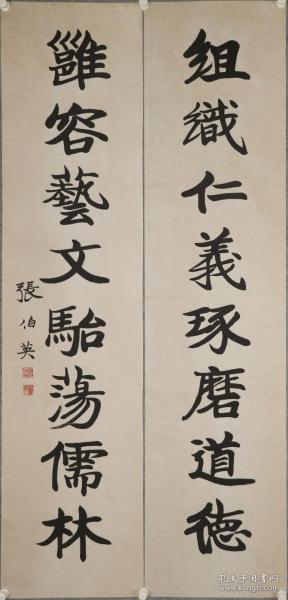 组織仁義琢磨道德
雝容藝文駘蕩儒林
張伯英
孔夫子旧书网